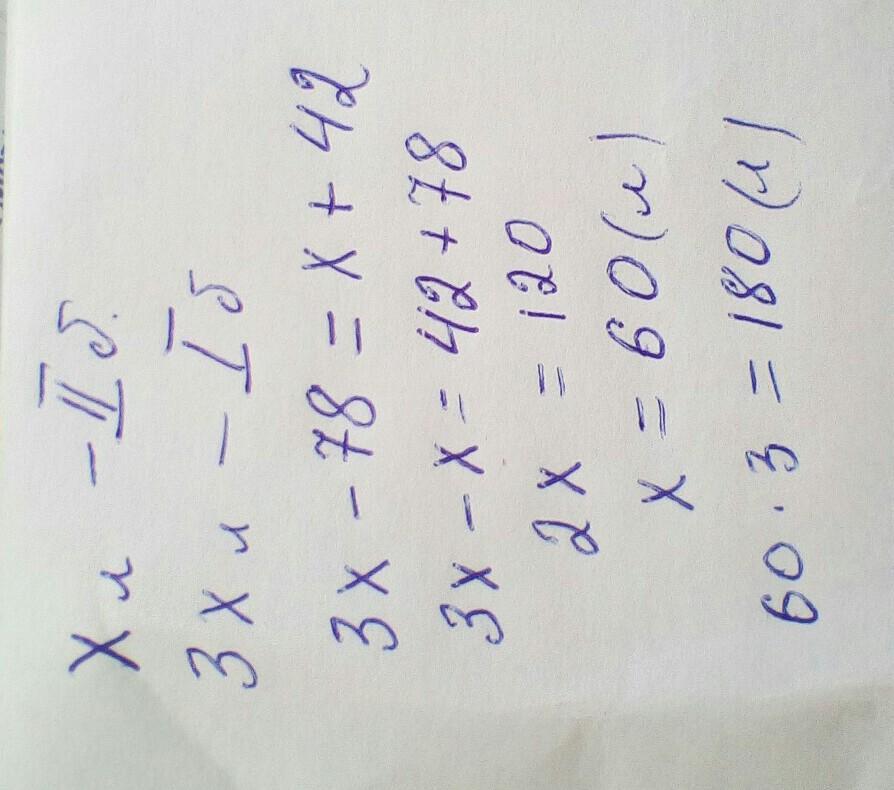 х л - II б.
3х л - I б
3х - 78 = х + 42
3х - х = 42 + 78
2х = 120
х = 60 (л)
60 · 3 = 180 (л)